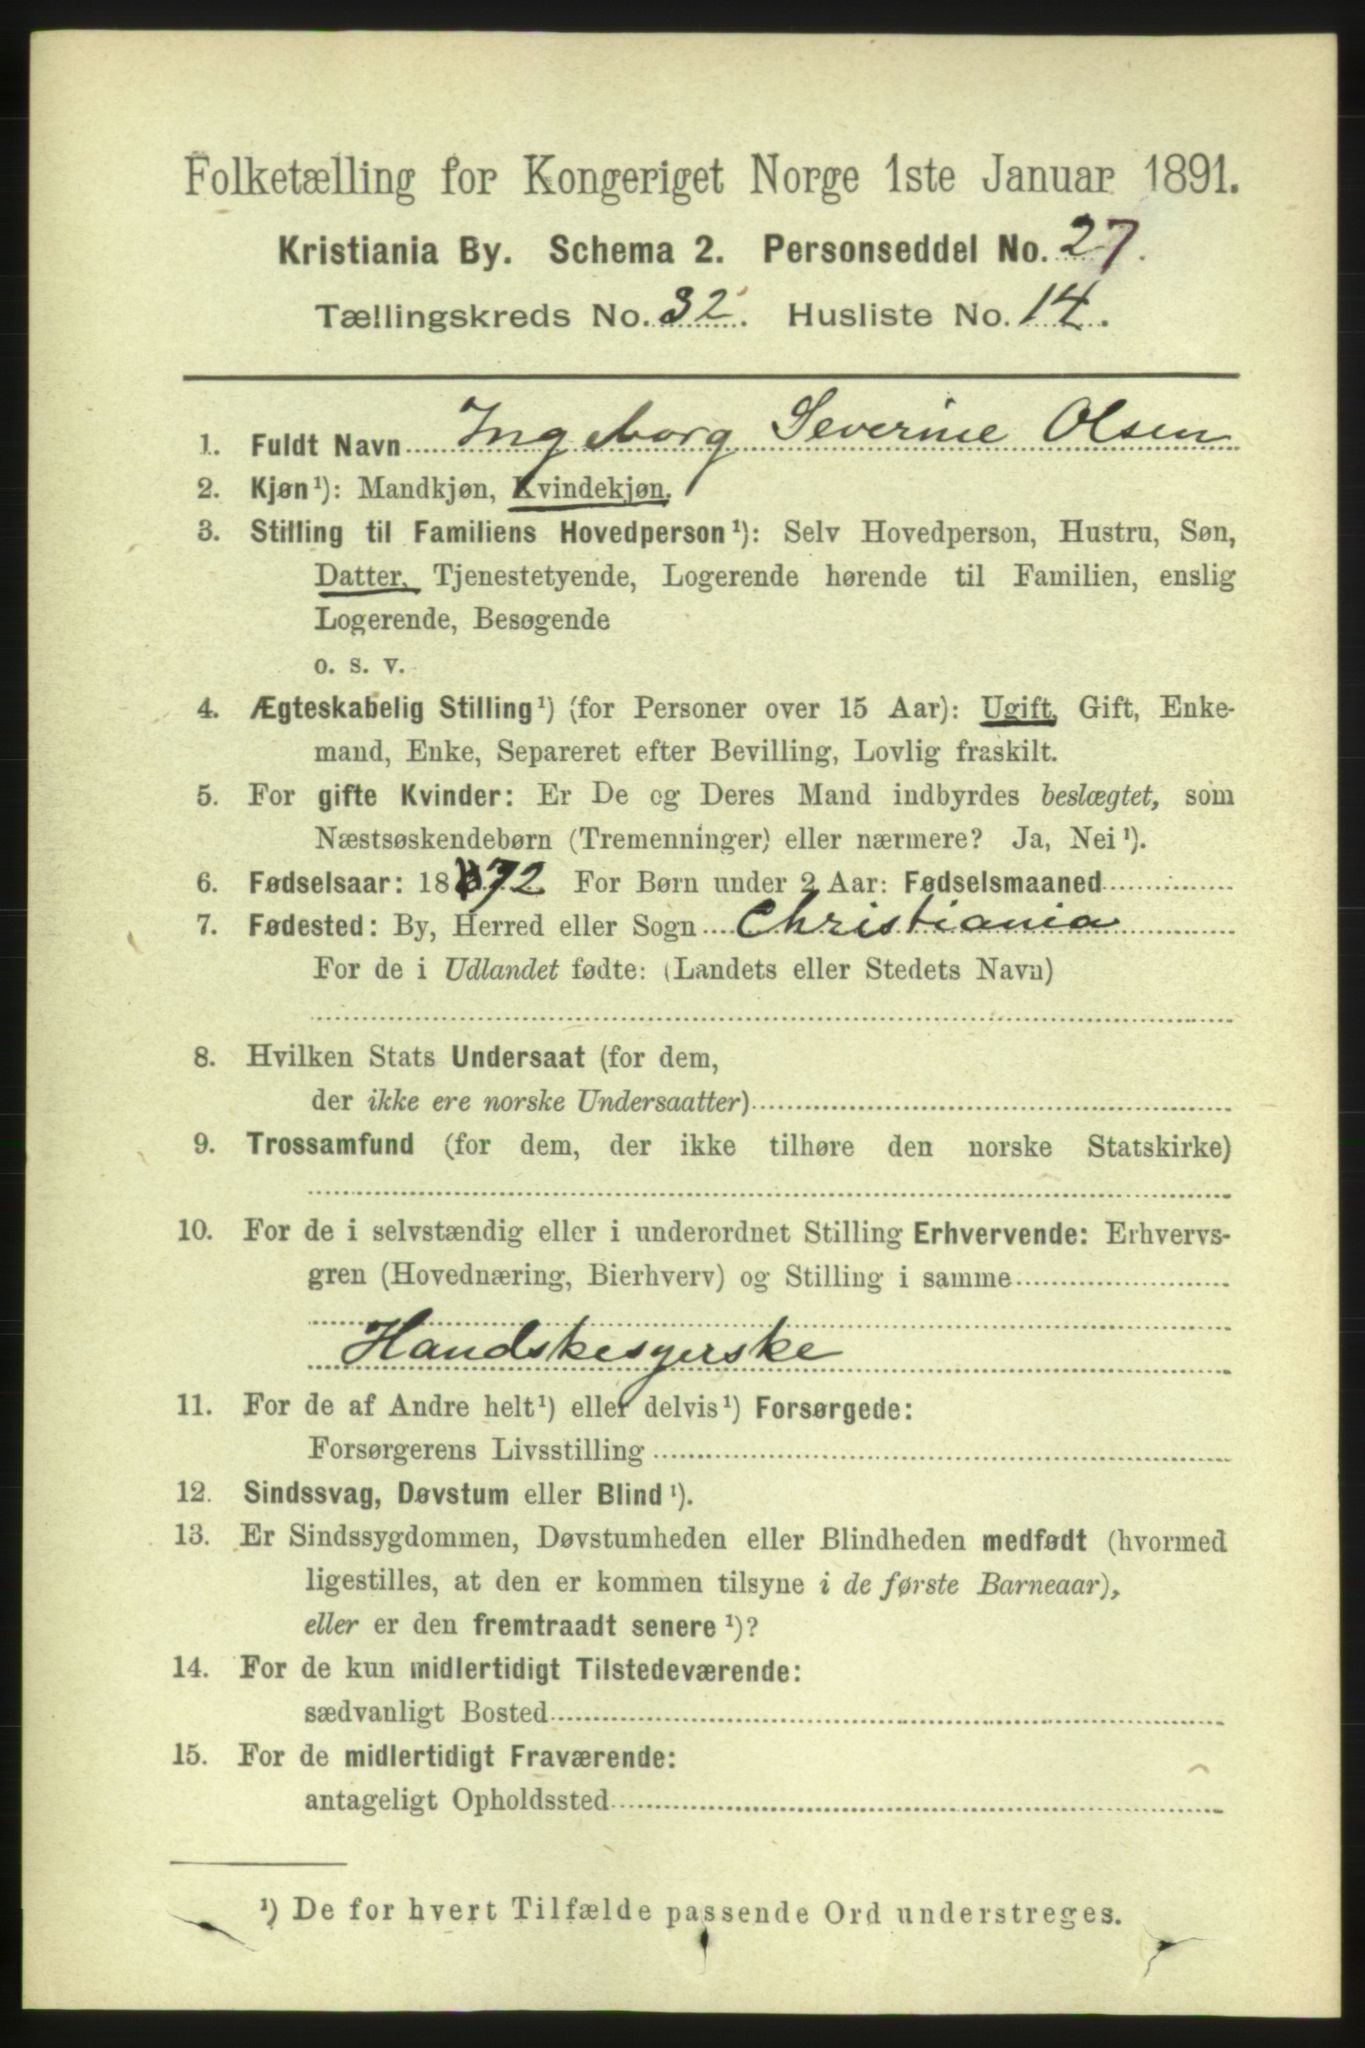 Folketælling for Kongeriget Norge 1ste Januar 1891.
Kristiania By. Schema 2. Personseddel No. 27.
Tællingskreds No. 32. Husliste No. 14.
1. Fuldt Navn Ingeborg Severine Olsen
2. Kjøn¹): Mandkjøn, Kvindekjøn.
3. Stilling til Familiens Hovedperson¹): Selv Hovedperson, Hustru, Søn,
Datter, Tjenestetyende, Logerende hørende til Familien, enslig
Logerende, Besøgende
o. s. v.
4. Ægteskabelig Stilling¹) (for Personer over 15 Aar): Ugift, Gift, Enke-
mand, Enke, Separeret efter Bevilling, Lovlig fraskilt.
5. For gifte Kvinder: Er De og Deres Mand indbyrdes beslægtet, som
Næstsøskendebørn (Tremenninger) eller nærmere? Ja, Nei¹).
6. Fødselsaar: 1872 For Børn under 2 Aar: Fødselsmaaned
7. Fødested: By, Herred eller Sogn Christiania
For de i Udlandet fødte: (Landets eller Stedets Navn)
8. Hvilken Stats Undersaat (for dem,
der ikke ere norske Undersaatter)
9. Trossamfund (for dem, der ikke tilhøre den norske Statskirke)
10. For de i selvstændig eller i underordnet Stilling Erhvervende: Erhvervs-
gren (Hovednæring, Bierhverv) og Stilling i samme
Handskesyerske
11. For de af Andre helt¹) eller delvis¹) Forsørgede:
Forsørgerens Livsstilling
12. Sindssvag, Døvstum eller Blind¹).
13. Er Sindssygdommen, Døvstumheden eller Blindheden medfødt (hvormed
ligestilles, at den er kommen tilsyne i de første Barneaar),
eller er den fremtraadt senere¹)?
14. For de kun midlertidigt Tilstedeværende:
sædvanligt Bosted
15. For de midlertidigt Fraværende:
antageligt Opholdssted
¹) De for hvert Tilfælde passende Ord understreges.